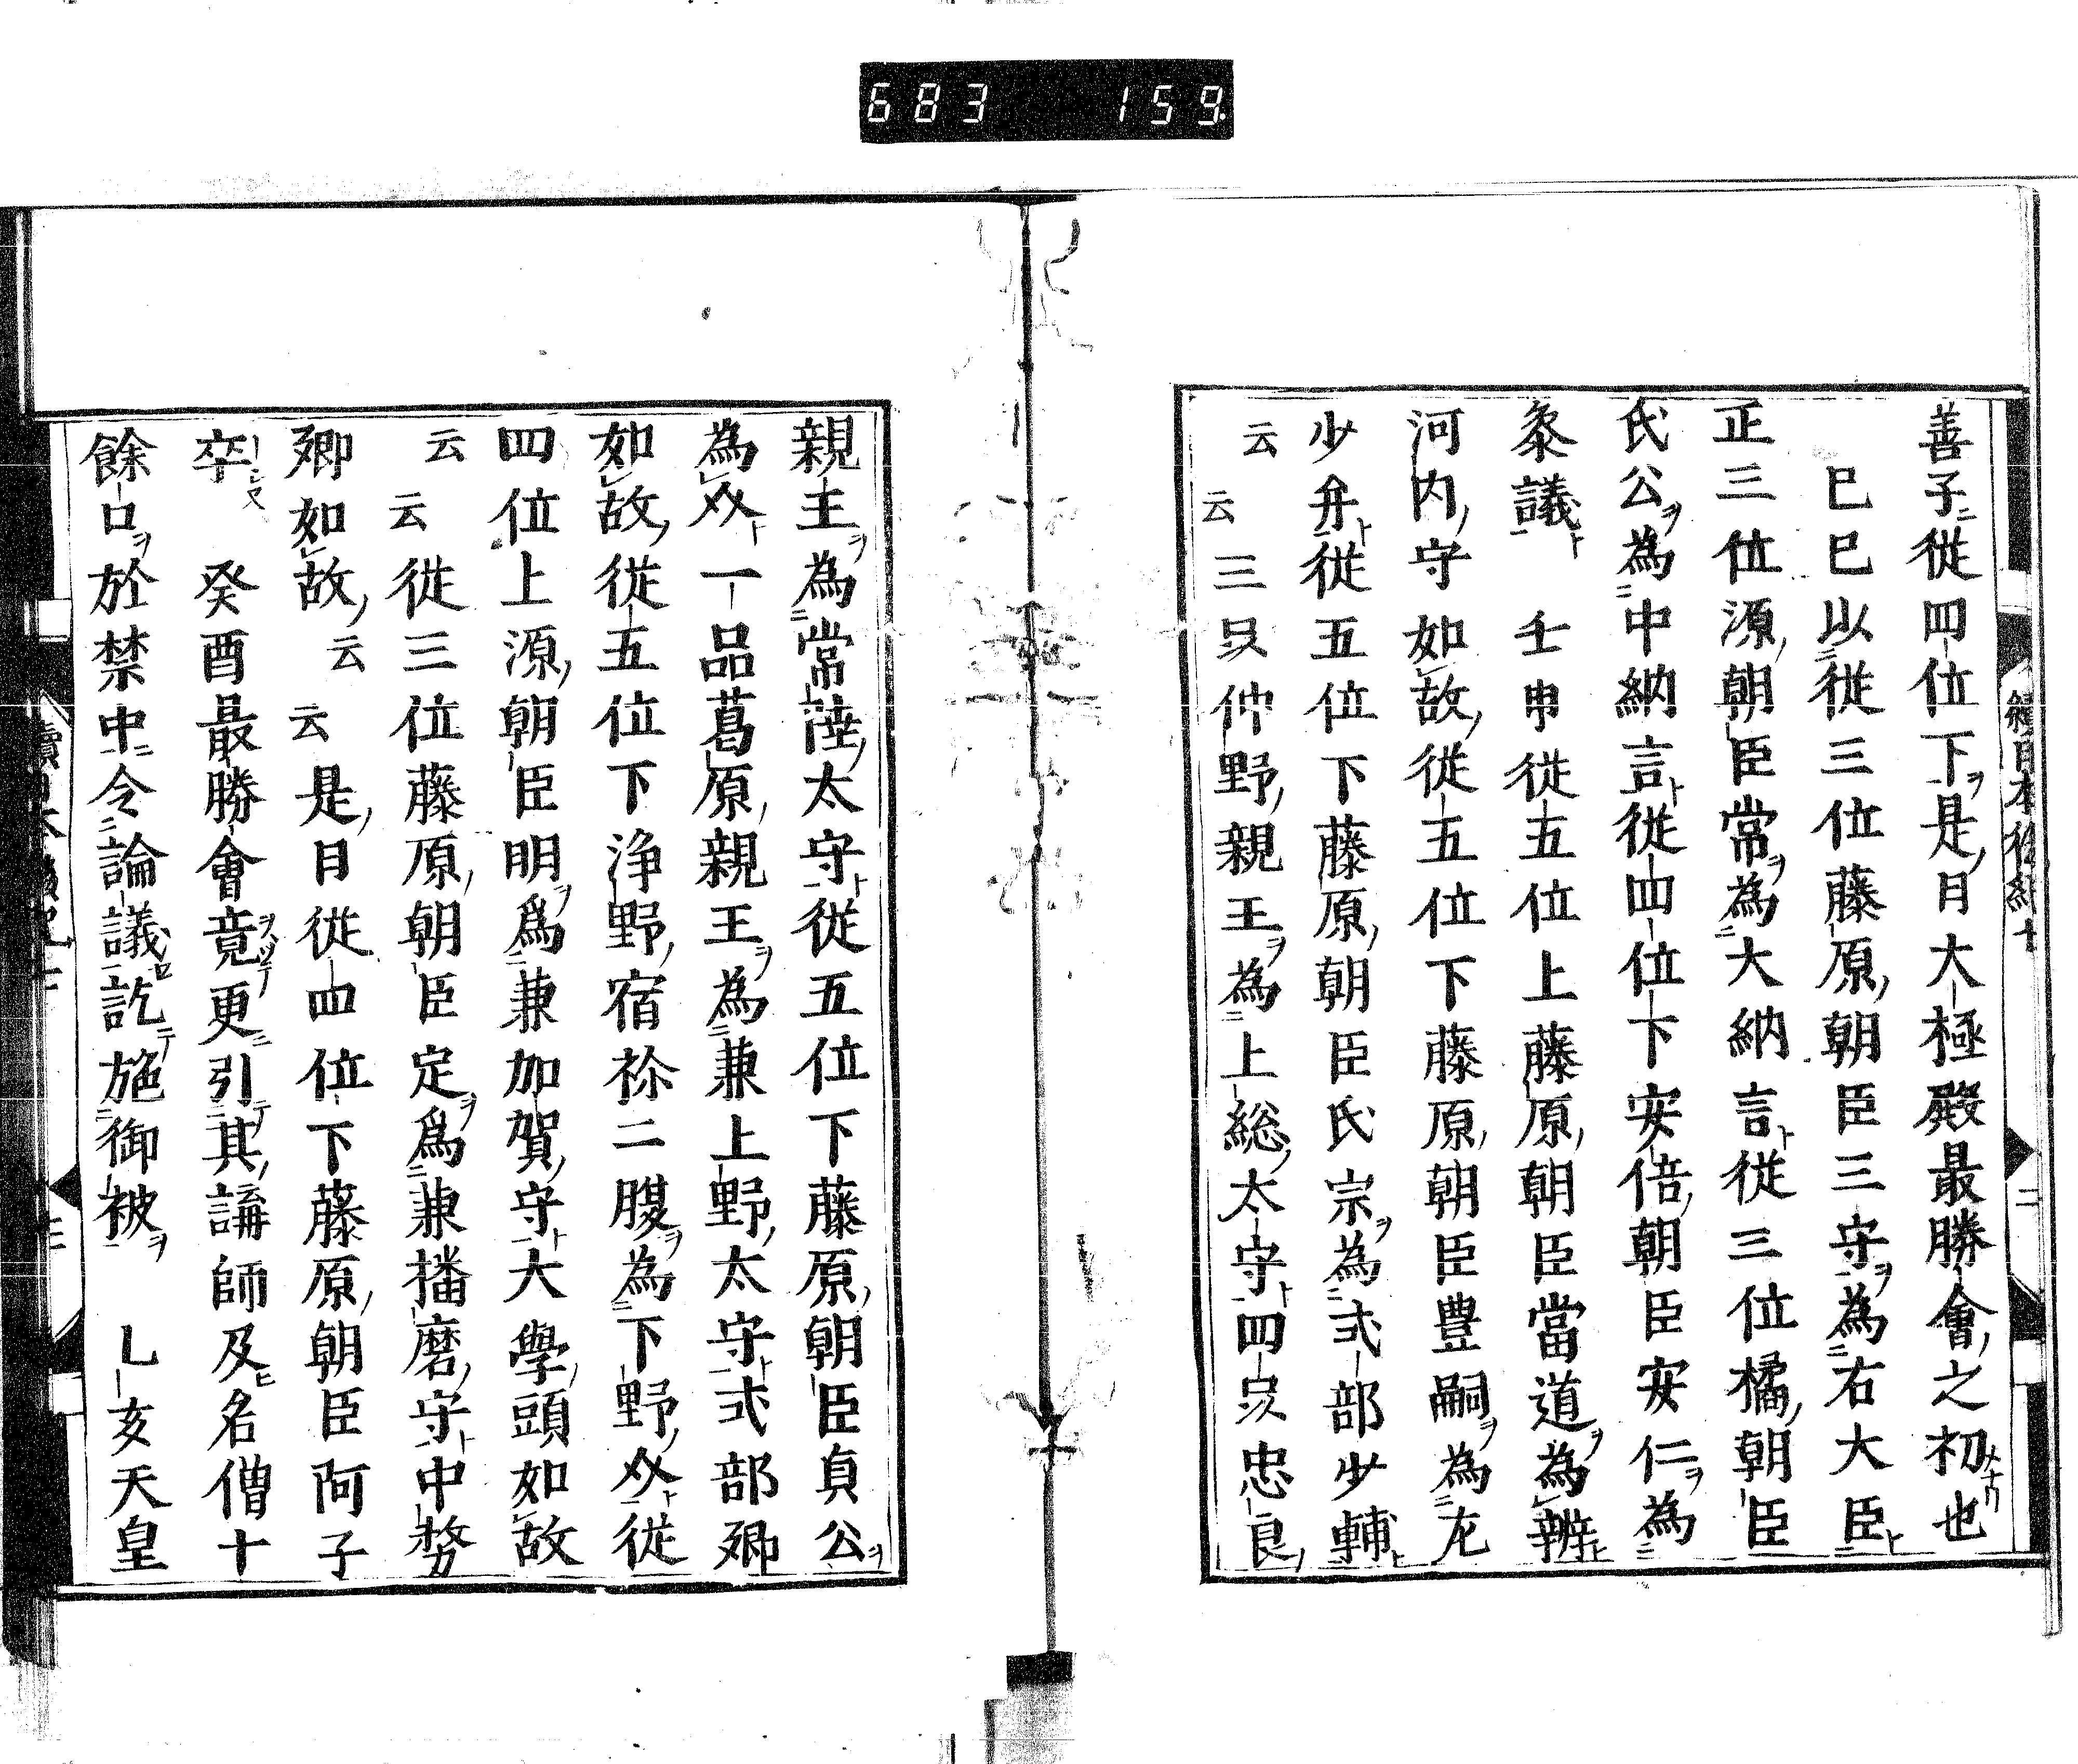 683 159
善子從四位下是日大極殿最勝會之初也
巳巳以從三位藤原朝臣三守為右大臣
正三位源朝臣常為大納言從三位橘朝臣
氏公為中納言從四位下安倍朝臣安仁為
叅議 壬申從五位上藤原朝臣當道為辨
河内守如故從五位下藤原朝臣豊嗣為左
少弁從五位下藤原朝臣氏宗為式部少輔
云云三品仲野親王為上総太守四品忠良
親王為常陸太守從五位下藤原朝臣貞公
為介一品葛原親王為兼上野太守式部卿
如故從五位下浄野宿祢二腹為下野介從
四位上源朝臣明爲兼加賀守大學頭如故
云云從三位藤原朝臣定爲兼播磨守中務
卿如故云云是日從四位下藤原朝臣阿子
卒 癸酉最勝會竟更引其講師及名僧十
餘口於禁中令論議訖施御被 乚亥天皇